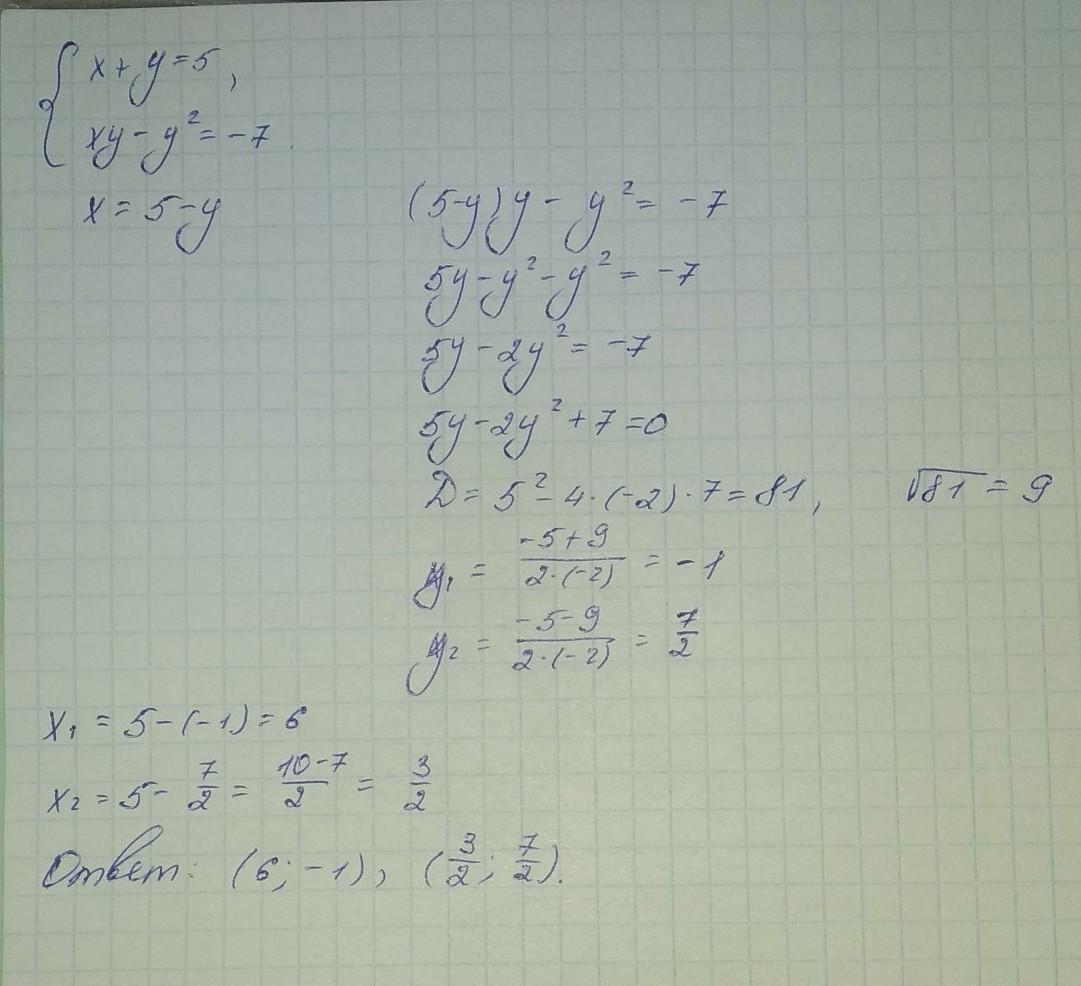 x+y=5,
xy-y²=-7.
x=5-y
(5-y)y-y²=-7
5y-y²-y²=-7
5y-2y²=-7
5y-2y²+7=0
D=5²-4·(-2)·7=81, √81=9
y₁=(-5+9)/(2·(-2))=-1
y₂=(-5-9)/(2·(-2))=7/2
x₁=5-(-1)=6
x₂=5-7/2=(10-7)/2=3/2
Ответ: (6;-1), (3/2; 7/2).